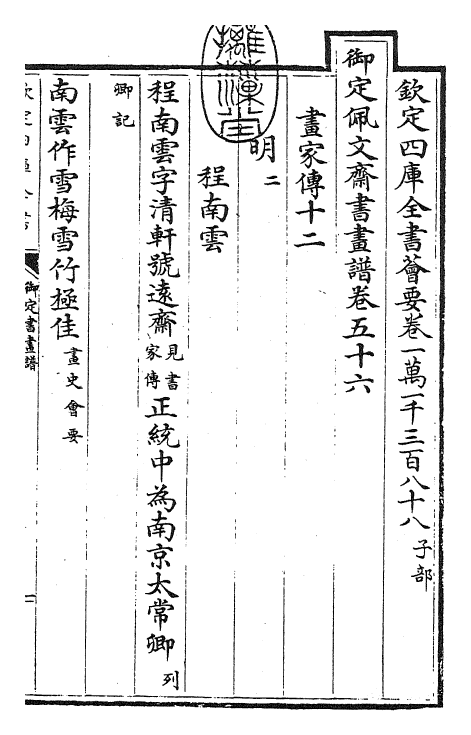 欽定四庫全書薈要卷一萬一千三百八十八 子部
御定佩文齋書畫譜卷五十六
畫家傳十二
明二
程南雲
程南雲字清軒號遠齋見書家傳正統中為南京太常卿列
卿記
南雲作雪梅雪竹極佳畫史會要
御定書畫譜